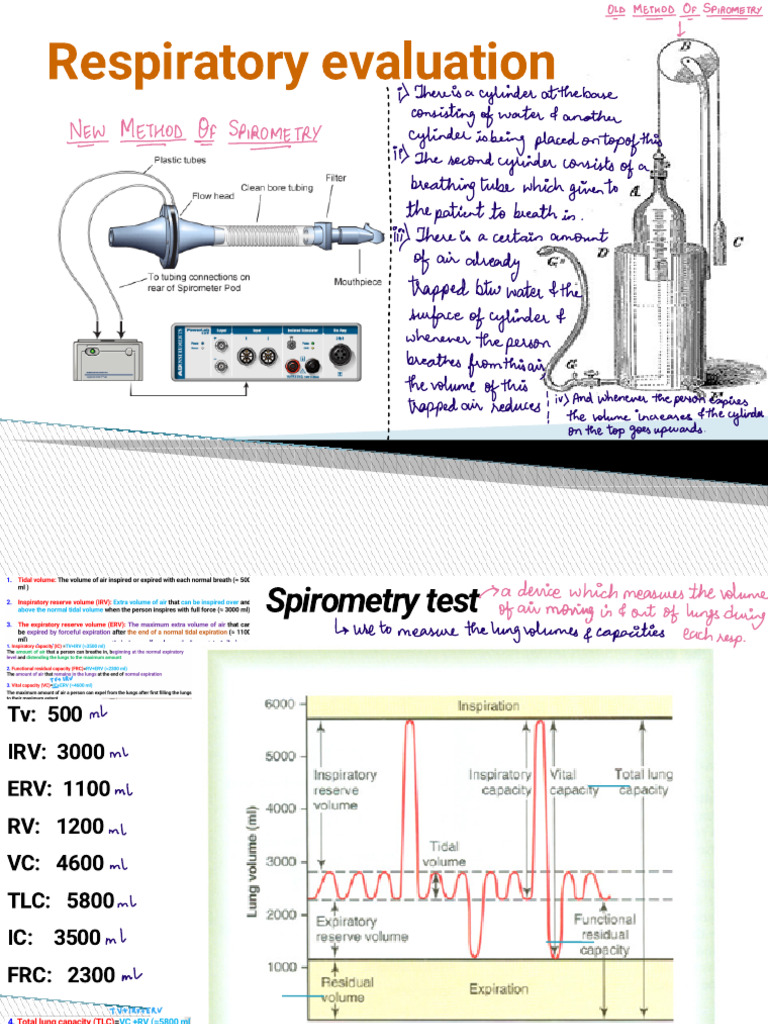 OLD METHOD OF SPIROMETRY
Respiratory evaluation
NEW METHOD OF SPIROMETRY
Plastic tubes
Flow head
Clean bore tubing
Filter
To tubing connections on
rear of Spirometer Pod
Mouthpiece
i) There is a cylinder at the base
consisting of water & another
cylinder is being placed on top of this
ii) The second cylinder consists of a
breathing tube which given to
the patient to breath in.
iii) There is a certain amount
of air already
trapped btw water & the
surface of cylinder &
whenever the person
breathes from this air
the volume of this
trapped air reduces
iv) And whenever the person expires
the volume increases & the cylinder
on the top goes upwards.
B
A
C
D
G
G
1. Tidal volume: The volume of air inspired or expired with each normal breath (= 500
ml )
2. Inspiratory reserve volume (IRV): Extra volume of air that can be inspired over and
above the normal tidal volume when the person inspires with full force (≈ 3000 ml)
3. The expiratory reserve volume (ERV): The maximum extra volume of air that can
be expired by forceful expiration after the end of a normal tidal expiration (≈ 1100
ml)
1. Inspiratory capacity (IC) =TV+IRV (≈3500 ml)
The amount of air that a person can breathe in, beginning at the normal expiratory
level and distending the lungs to the maximum amount
2. Functional residual capacity (FRC)=RV+ERV (≈2300 ml)
The amount of air that remains in the lungs at the end of normal expiration
TV+ IRV
3. Vital capacity (VC)=IC+ERV (≈4600 ml)
The maximum amount of air a person can expel from the lungs after first filling the lungs
to their maximum extent
Spirometry test
a device which measures the volume
of air moving in & out of lungs during
each resp.
use to measure the lung volumes & capacities
Tv: 500 ml
IRV: 3000 ml
ERV: 1100 ml
RV: 1200 ml
VC: 4600 ml
TLC: 5800 ml
IC: 3500 ml
FRC: 2300 ml
TV+IRV+ERV
4. Total lung capacity (TLC)=VC +RV (≈5800 ml
Lung volume (ml)
6000
5000
4000
3000
2000
1000
Inspiration
Inspiratory
reserve
volume
Inspiratory
capacity
Vital
capacity
Total lung
capacity
Tidal
volume
Expiratory
reserve volume
Functional
residual
capacity
Residual
volume
Expiration